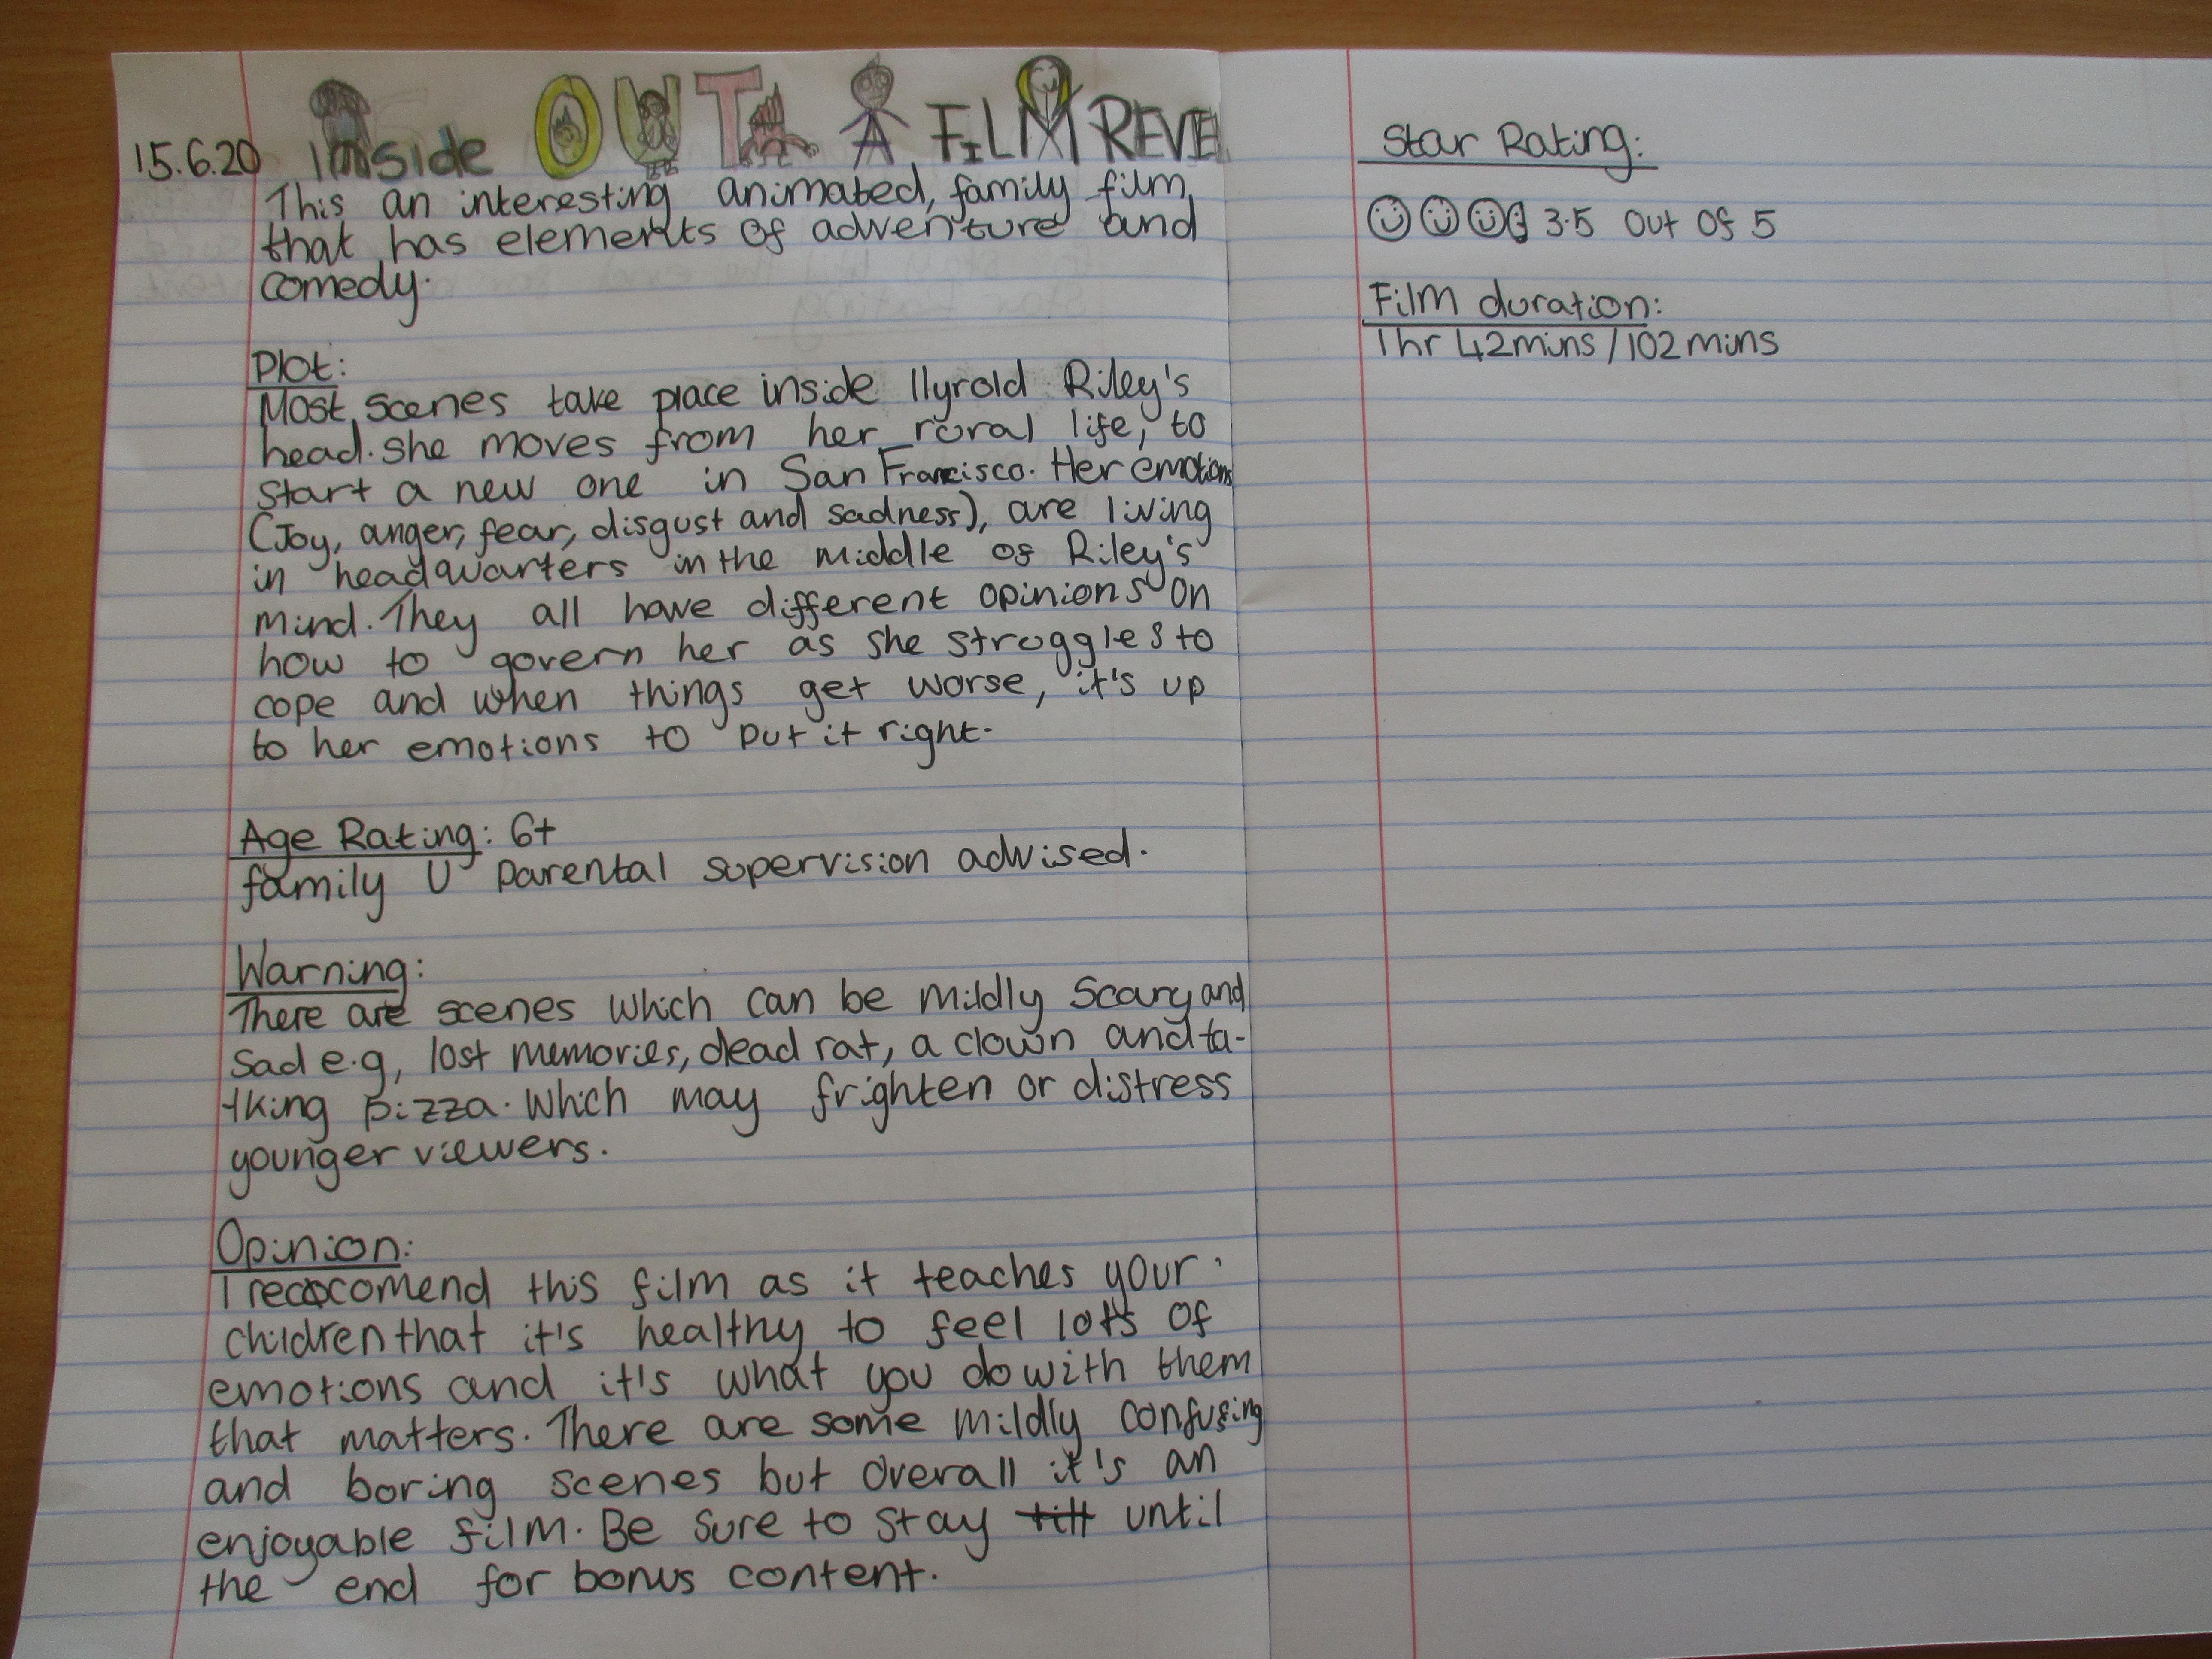 15.6.20 Inside OUT A FILM REVIE
This an interesting animated, family film,
that has elements of adventure and
comedy.
Plot:
Most scenes take place inside 11yrold Riley's
head. She moves from her roral life, to
start a new one in San Francisco. Her emotions
(Joy, anger, fear, disgust and sadness), are living
in headquarters in the middle of Riley's
mind. They all have different opinions on
how to govern her as she struggles to
cope and when things get worse, it's up
to her emotions to put it right.
Age Rating: 6+
family U Parental supervision advised.
Warning:
There are scenes which can be mildly scary and
sad e.g, lost memories, dead rat, a clown and ta-
lking pizza. Which may frighten or distress
younger viewers.
Opinion:
I reccomend this film as it teaches your
children that it's healthy to feel lots of
emotions and it's what you do with them
that matters. There are some mildly confusing
and boring scenes but overall it's an
enjoyable film. Be sure to stay till until
the end for bonus content.
Star Rating:
3.5 out of 5
Film duration:
1hr 42mins / 102 mins